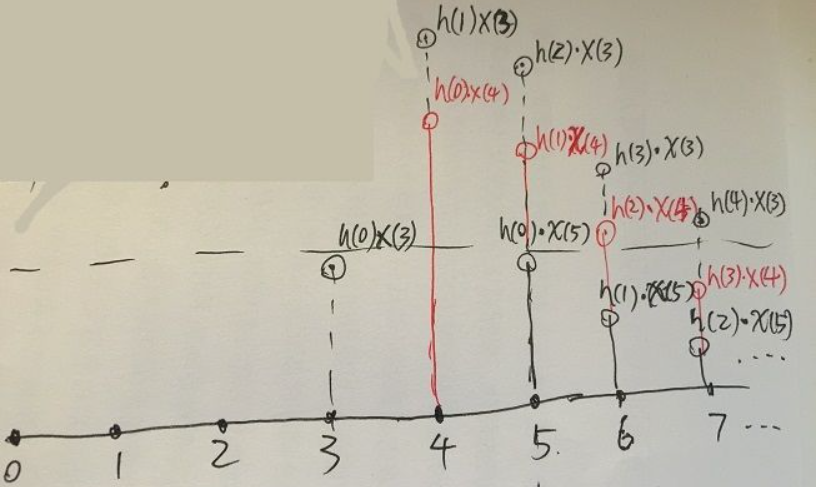 h(1)X(3)
h(2)·X(3)
h(0)X(4)
h(1)X(4)
h(3)·X(3)
h(2)·X(4)
h(4)·X(3)
h(0)X(3)
h(0)·X(5)
h(3)·X(4)
h(1)·X(5)
h(2)·X(5)
....
0 1 2 3 4 5. 6 7 ...